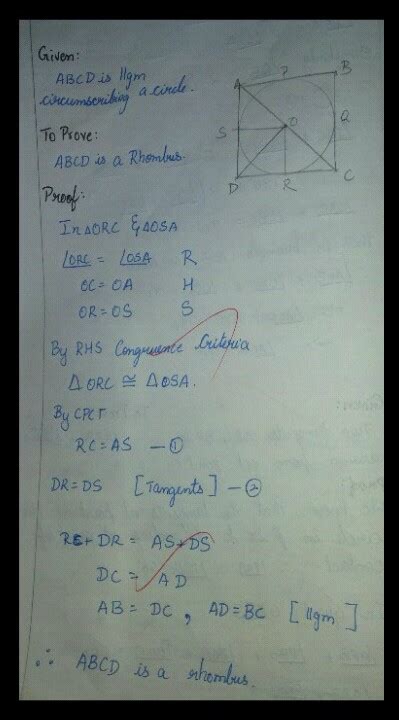 Given:
ABCD is llgm
circumscribing a circle.
To Prove:
ABCD is a Rhombus.
Proof:
A P B
S O Q
D R C
In ΔORC & ΔOSA
∠ORC = ∠OSA R
OC = OA H
OR = OS S
By RHS Congruence Criteria
Δ ORC ≅ ΔOSA.
By CPCT
RC = AS — ①
DR = DS [Tangents] — ②
RC + DR = AS + DS
DC = AD
AB = DC , AD = BC [llgm]
∴ ABCD is a rhombus.